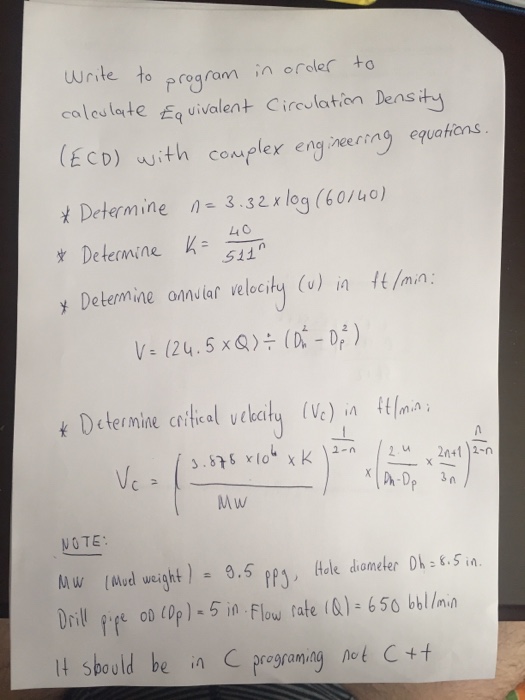 Write to program in order to
calculate Equivalent Circulation Density
(ECD) with complex engineering equations.
* Determine n = 3.32 x log (60/40)
* Determine K = 40 / 511^n
* Determine annular velocity (u) in ft/min:
V = (24.5 x Q) ÷ (Dh^2 - Dp^2)
* Determine critical velocity (Vc) in ft/min:
Vc = (3.878 x 10^4 x K / MW)^(1/(2-n)) x (2.4 / (Dh-Dp) x (2n+1)/3n)^(n/(2-n))
NOTE:
MW (Mud weight) = 9.5 ppg, Hole diometer Dh = 8.5 in.
Drill pipe OD (Dp) = 5 in. Flow rate (Q) = 650 bbl/min
It should be in C programing not C++